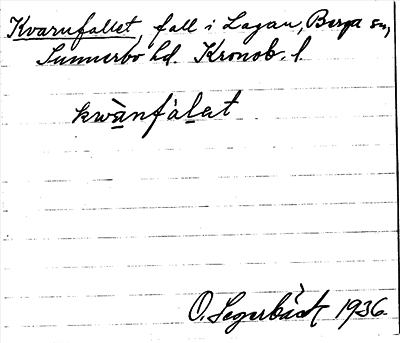 Kvarnfallet, fall i Lagan, Berga sn,
Sunnerbo hd. Kronob. l.
kwànfàlet
O. Segerbäck 1936.